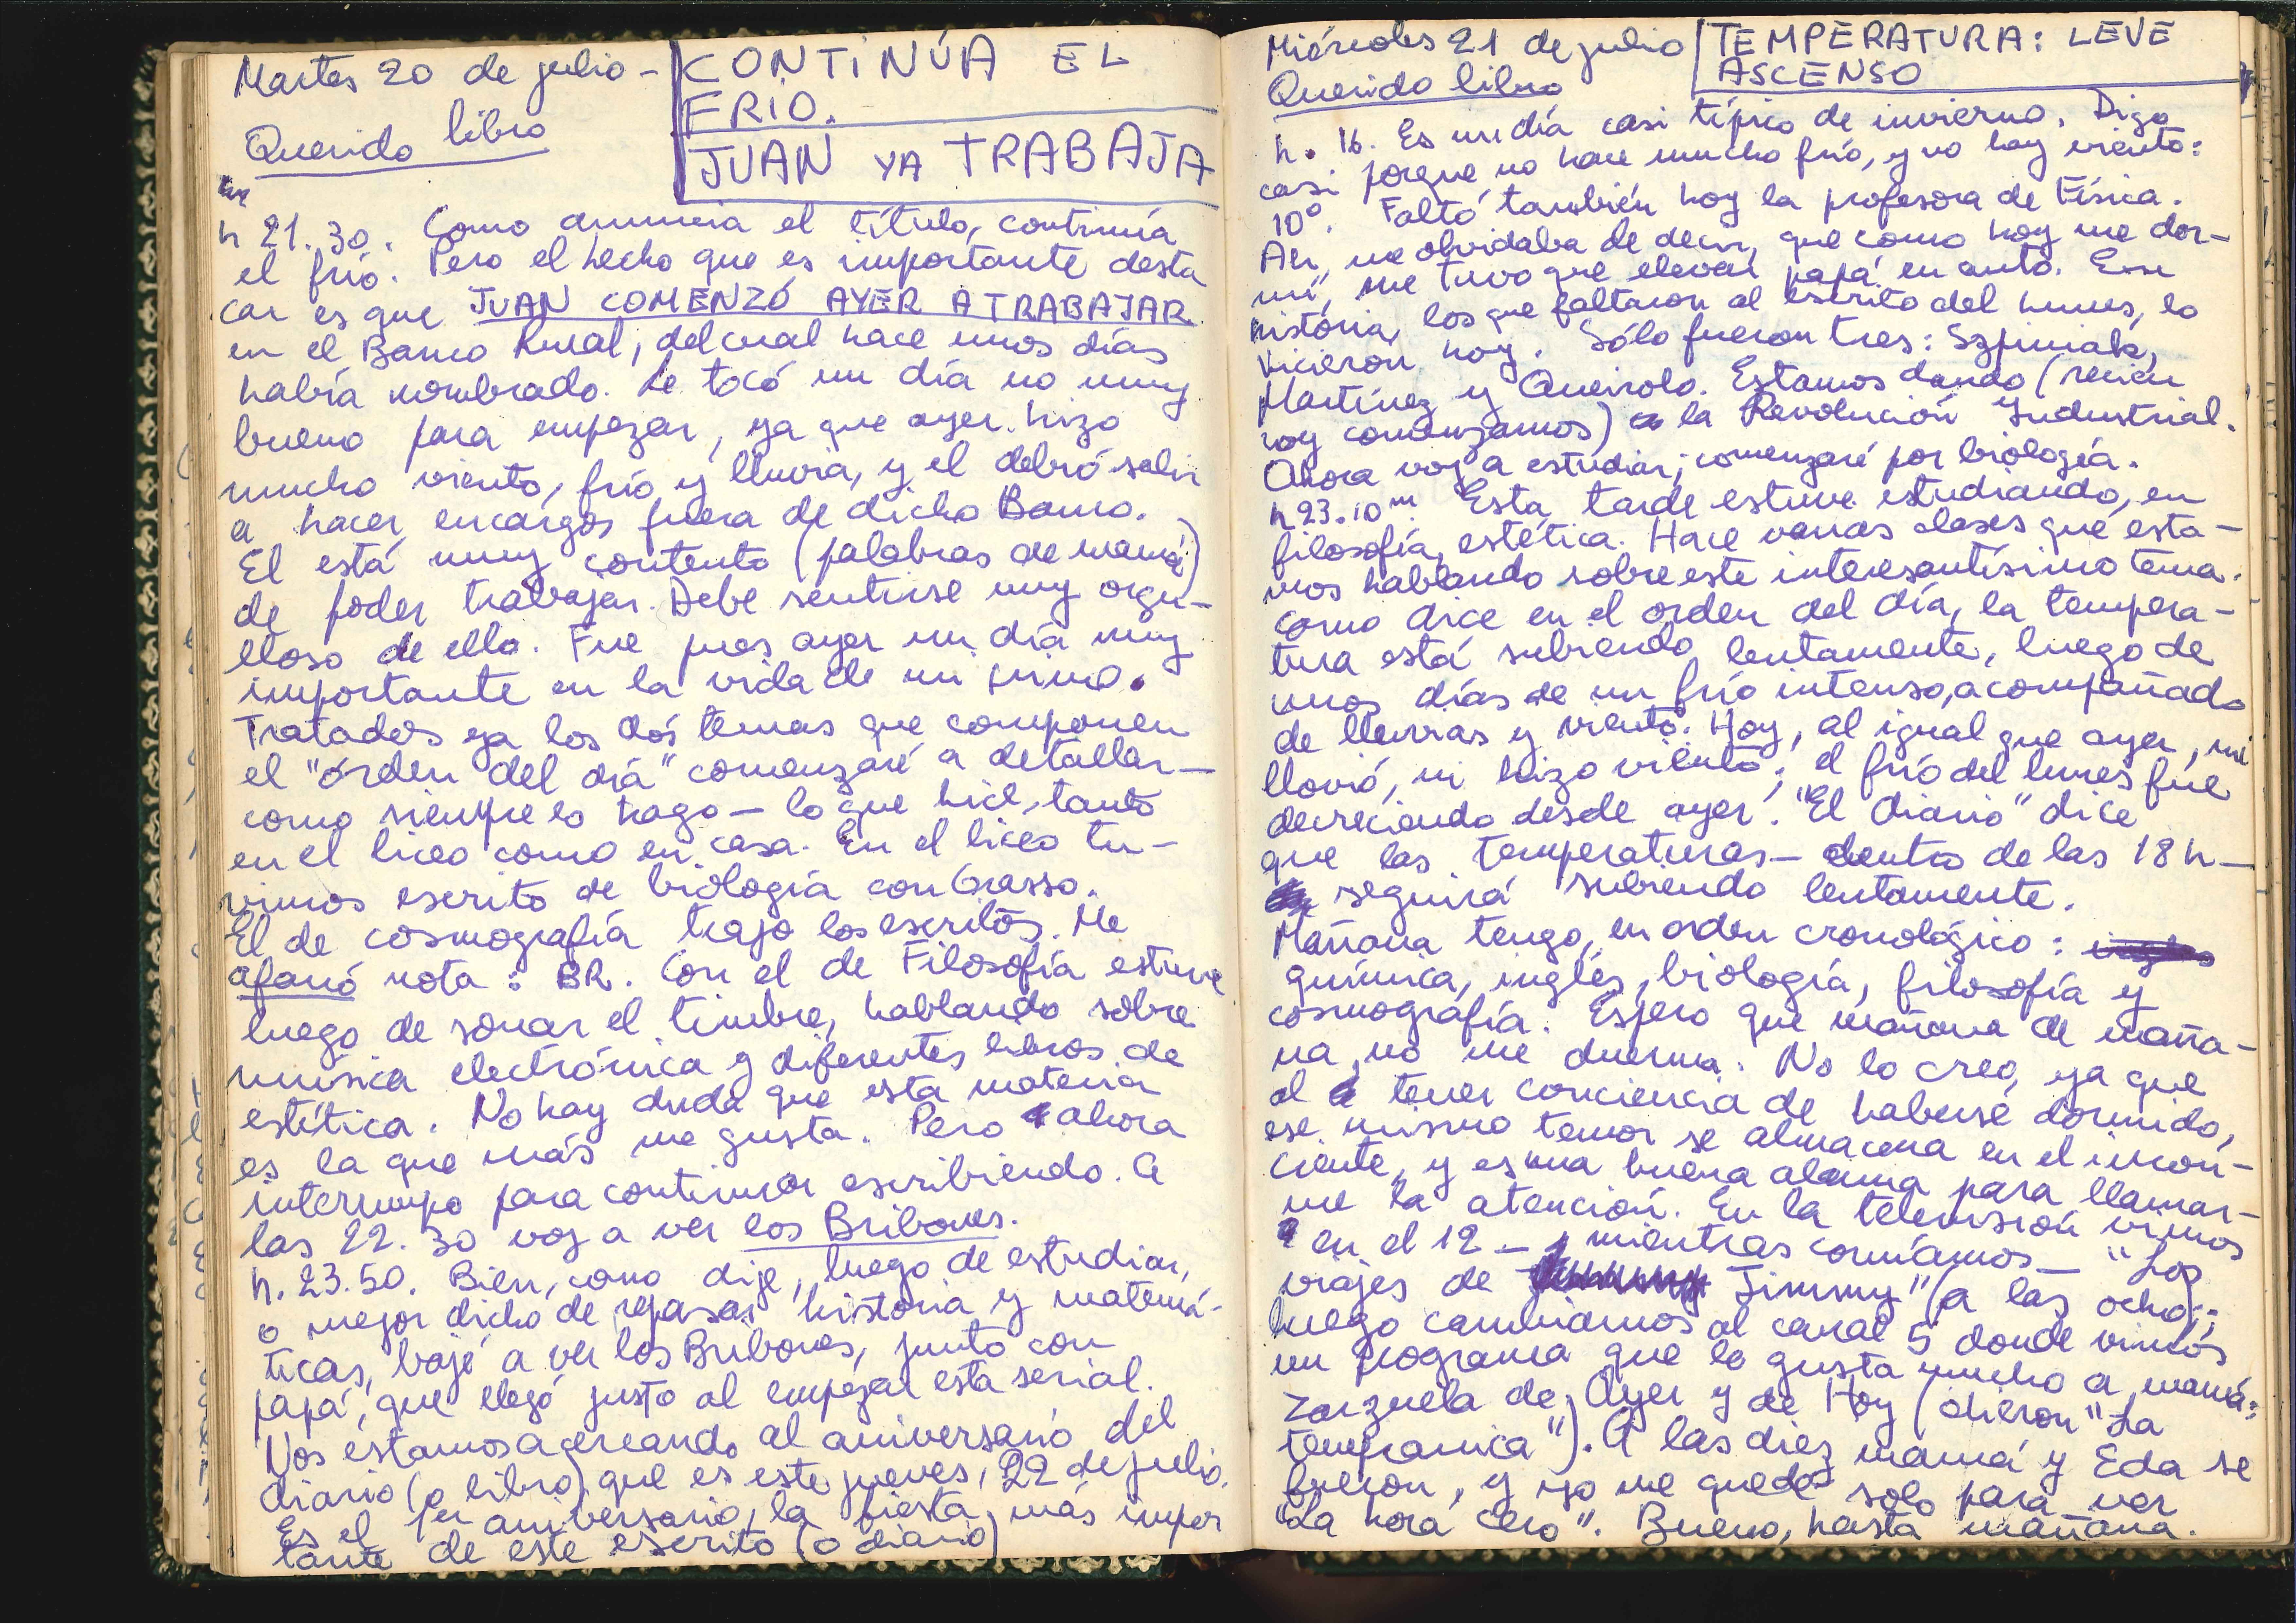 Martes 20 de julio -
CONTINÚA EL
FRIO.
Querido libro
JUAN YA TRABAJA
h 21.30. Como anuncia el título, continúa
el frío. Pero el hecho que es importante desta
car es que JUAN COMENZÓ AYER A TRABAJAR
en el Banco Rural, del cual hace unos días
había nombrado. Le tocó un día no muy
bueno para empezar, ya que ayer hizo
mucho viento, frío y lluvia, y el debió salir
a hacer encargos fuera de dicho Banco.
El está muy contento (palabras de mamá)
de poder trabajar. Debe sentirse muy orgu-
lloso de ello. Fue pues ayer un día muy
importante en la vida de mi primo.
Tratados ya los dos temas que componen
el "órden del día" comenzaré a detallar-
como siempre lo hago - lo que hice, tanto
en el liceo como en casa. En el liceo tu-
vimos escrito de biología con Grasso.
El de cosmografía trajo los escritos. Me
afanó nota: BR. Con el de Filosofía estuve
luego de sonar el timbre, hablando sobre
música electrónica y diferentes libros de
estética. No hay duda que esta materia
es la que más me gusta. Pero ahora
interrumpo para continuar escribiendo. A
las 22.30 voy a ver los Bribones.
h. 23.50. Bien, como dije, luego de estudiar,
o mejor dicho de repasar historia y matemá-
ticas, bajé a ver los Bribones, junto con
papá, que llegó justo al empezar esta serial.
Nos estamos acercando al aniversario del
diario (o libro) que es este jueves, 22 de julio.
Es el 1er aniversario, la fiesta más impor
tante de este escrito (o diario)
Miércoles 21 de julio
TEMPERATURA: LEVE
ASCENSO
Querido libro
h. 16. Es un día casi típico de invierno. Digo
casi porque no hace mucho frío, y no hay viento:
10°. Faltó también hoy la profesora de Física.
Ah, me olvidaba de decir, que como hoy me dor-
mí, me tuvo que llevar papá en auto. En
história, los que faltaron al escrito del lunes, lo
hicieron hoy. Sólo fueron tres: Szpiniak,
Martínez y Queirolo. Estamos dando (recién
hoy comenzamos) la Revolución Industrial.
Ahora voy a estudiar; comenzaré por biología.
h 23.10m Esta tarde estuve estudiando, en
filosofía, estética. Hace varias clases que esta-
mos hablando sobre este interesantísimo tema.
Como dice en el orden del día, la tempera-
tura está subiendo lentamente, luego de
unos días de un frío intenso, acompañado
de lluvias y viento. Hoy, al igual que ayer, ni
llovió, ni hizo viento; el frío del lunes fue
decreciendo desde ayer. "El Diario" dice
que las temperaturas - dentro de las 18 h -
seguirá subiendo lentamente.
Mañana tengo, en orden cronológico:
química, inglés, biología, filosofía y
cosmografía. Espero que mañana de maña-
na, no me duerma. No lo creo, ya que
al tener conciencia de haberse dormido,
ese mismo temor se almacena en el incon-
ciente, y es una buena alarma para llamar-
me la atención. En la televisión vimos
en el 12 - mientras comíamos - "Los
viajes de Jimmy" (a las ocho);
luego cambiamos al canal 5 donde vimos
un programa que le gusta mucho a mamá:
Zarzuela de Ayer y de Hoy (dieron "La
tempranica"). A las diez mamá y Eda se
fueron, y yo me quedé solo para ver
"La hora cero". Bueno, hasta mañana.